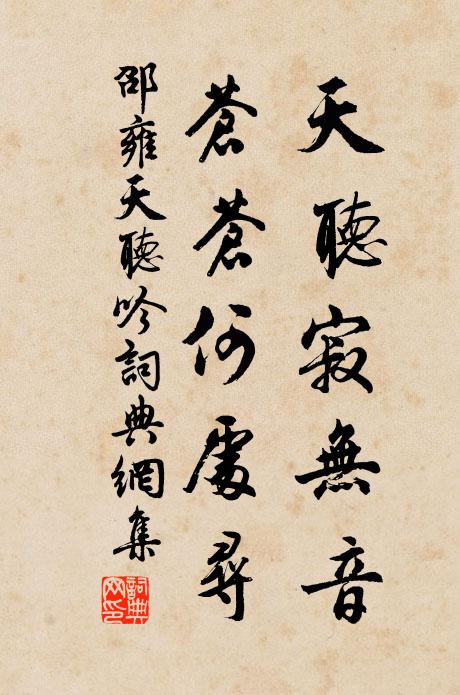 天聽寂無音
蒼蒼何處尋
邵雍天聽吟詞典網集
詞典網印